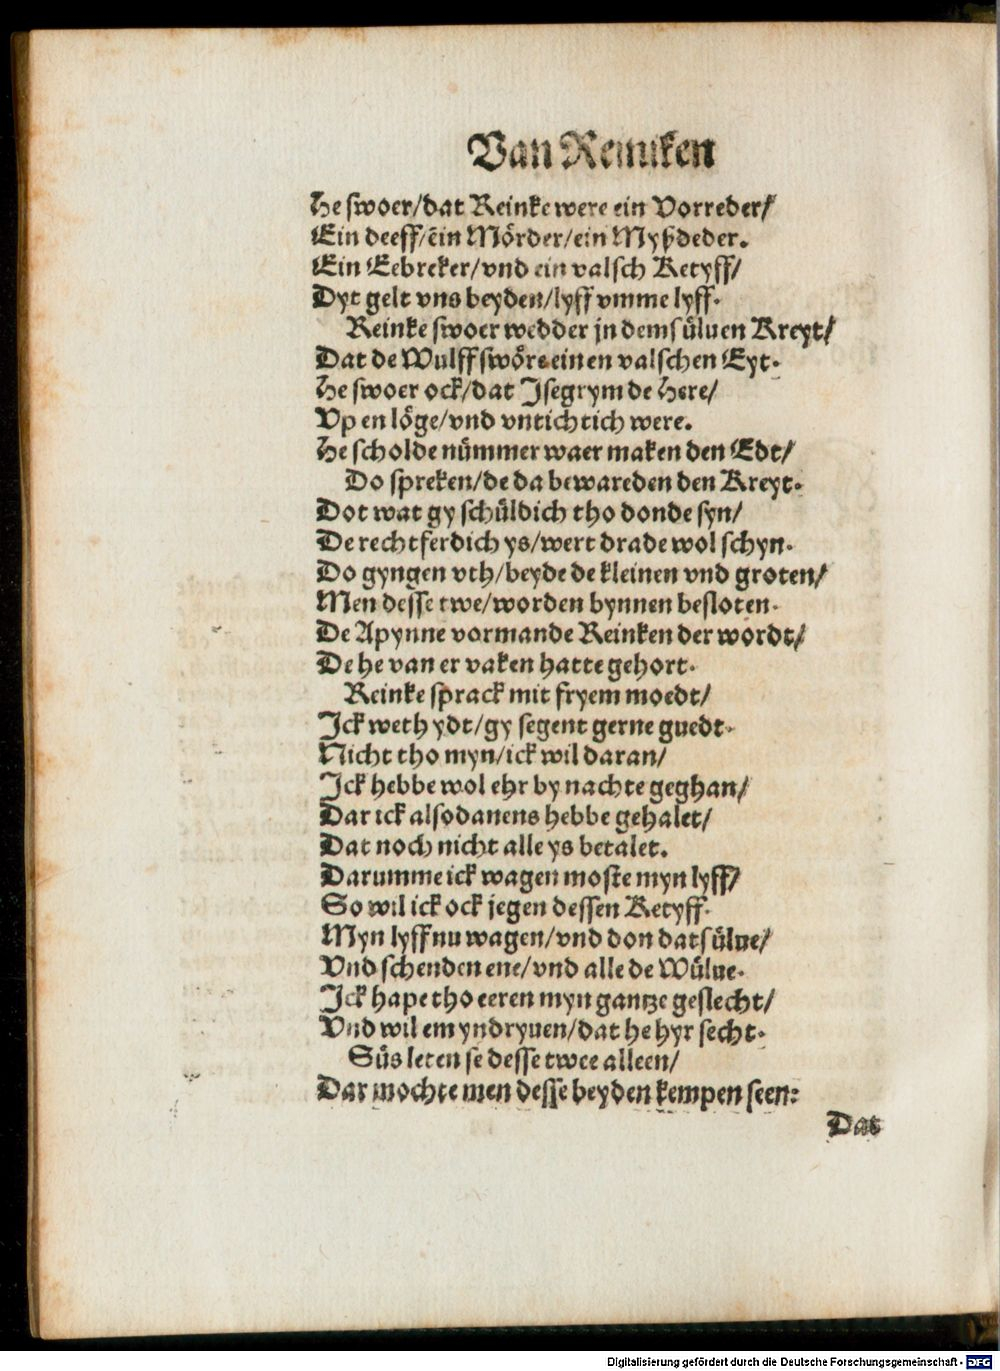 Van Reinken
He swoer/dat Reinke were ein Vorreder/
Ein deeff/ein Mörder/ein Myßdeder.
Ein Eebreker/vnd ein valsch Ketyff/
Dyt gelt vns beyden/lyff vmme lyff.
Reinke swoer wedder jn demsüluen Kreyt/
Dat de Wulff swöre einen valschen Eyt.
He swoer ock/dat Jsegrym de Here/
Vp en löge/vnd vntichtich were.
He scholde nümmer waer maken den Edt/
Do spreken/de da bewareden den Kreyt.
Dot wat gy schüldich tho donde syn/
De rechtferdich ys/wert drade wol schyn.
Do gyngen vth/beyde de kleinen vnd groten/
Men desse twe/worden bynnen besloten.
De Apynne vormande Reinken der wordt/
De he van er vaken hatte gehort.
Reinke sprack mit fryem moedt/
Jck weth ydt/gy segent gerne guedt.
Nicht tho myn/ick wil daran/
Jck hebbe wol ehr by nachte geghan/
Dar ick alsodanens hebbe gehalet/
Dat noch nicht alle ys betalet.
Darumme ick wagen moste myn lyff/
So wil ick ock jegen dessen Ketyff.
Myn lyff nu wagen/vnd don datsülue/
Vnd schenden ene/vnd alle de Wülue.
Jck hape tho eeren myn gantze geslecht/
Vnd wil em yndryuen/dat he hyr secht.
Süs leten se desse twee alleen/
Dar mochte men desse beyden kempen seen:
Dat
Digitalisierung gefördert durch die Deutsche Forschungsgemeinschaft - DFG